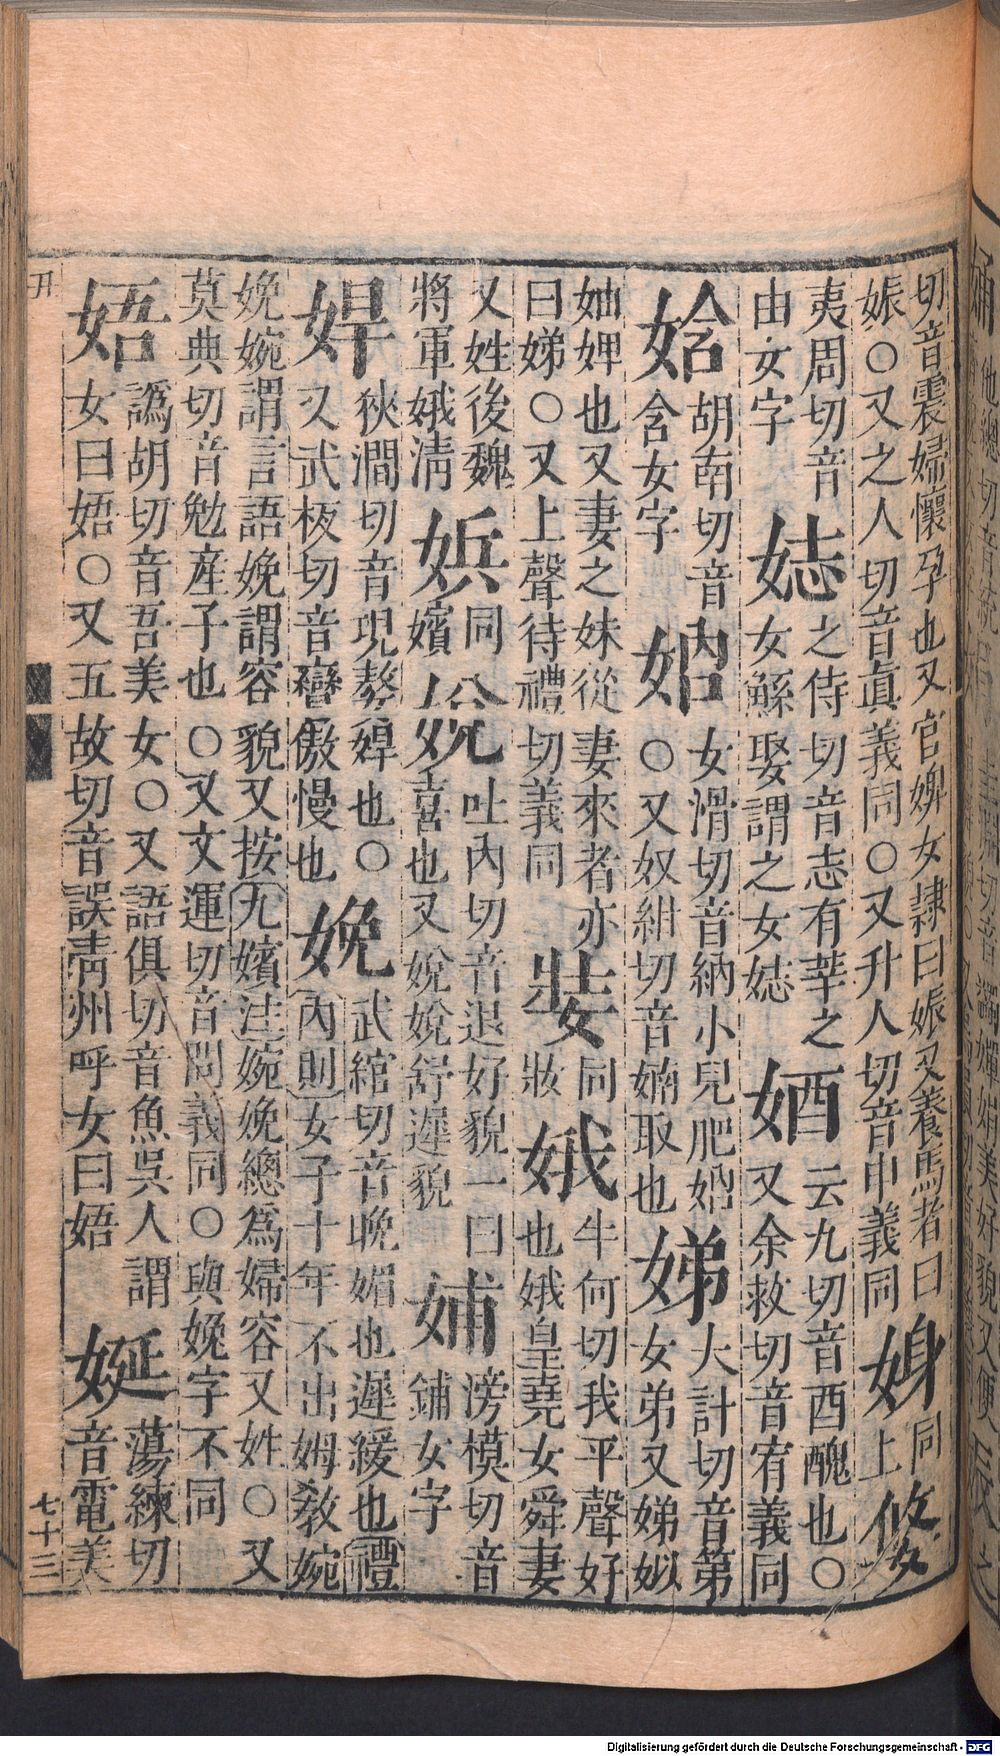 切音震婦懷孕也又官婢女隸曰娠又養馬者曰
娠〇又之人切音眞義同〇又升人切音申義同
㛛同上
㛜夷周切音由女字
娡之侍切音志有莘之女鯀娶謂之女娡
㛗云九切音酉醜也〇又余救切音宥義同
㛦胡南切音含女字
妠女滑切音納小兒肥妠〇又奴紺切音婻取也
娣大計切音第女弟又娣姒妯娌也又妻之妹從妻來者亦曰娣〇又上聲待禮切義同
娤同妝
娥牛何切我平聲好也娥皇堯女舜妻又姓後魏將軍娥清
娦同嬪
娧吐內切音退好貌一曰喜也又娧娧舒遲貌
㛔滂模切音鋪女字
娨狹澗切音現嫯娨也〇又武板切音矕傲慢也
娩武綰切音晚媚也遲緩也禮內則女子十年不出姆教婉娩婉謂言語娩謂容貌又按九嬪注婉娩總爲婦容又姓〇又莫典切音勉産子也〇又文運切音問義同〇與娩字不同
娪譌胡切音吾美女〇又語俱切音魚吳人謂女曰娪〇又五故切音誤靑州呼女曰娪
娫蕩練切音電美
丑
七十三
Digitalisierung gefördert durch die Deutsche Forschungsgemeinschaft - DFG